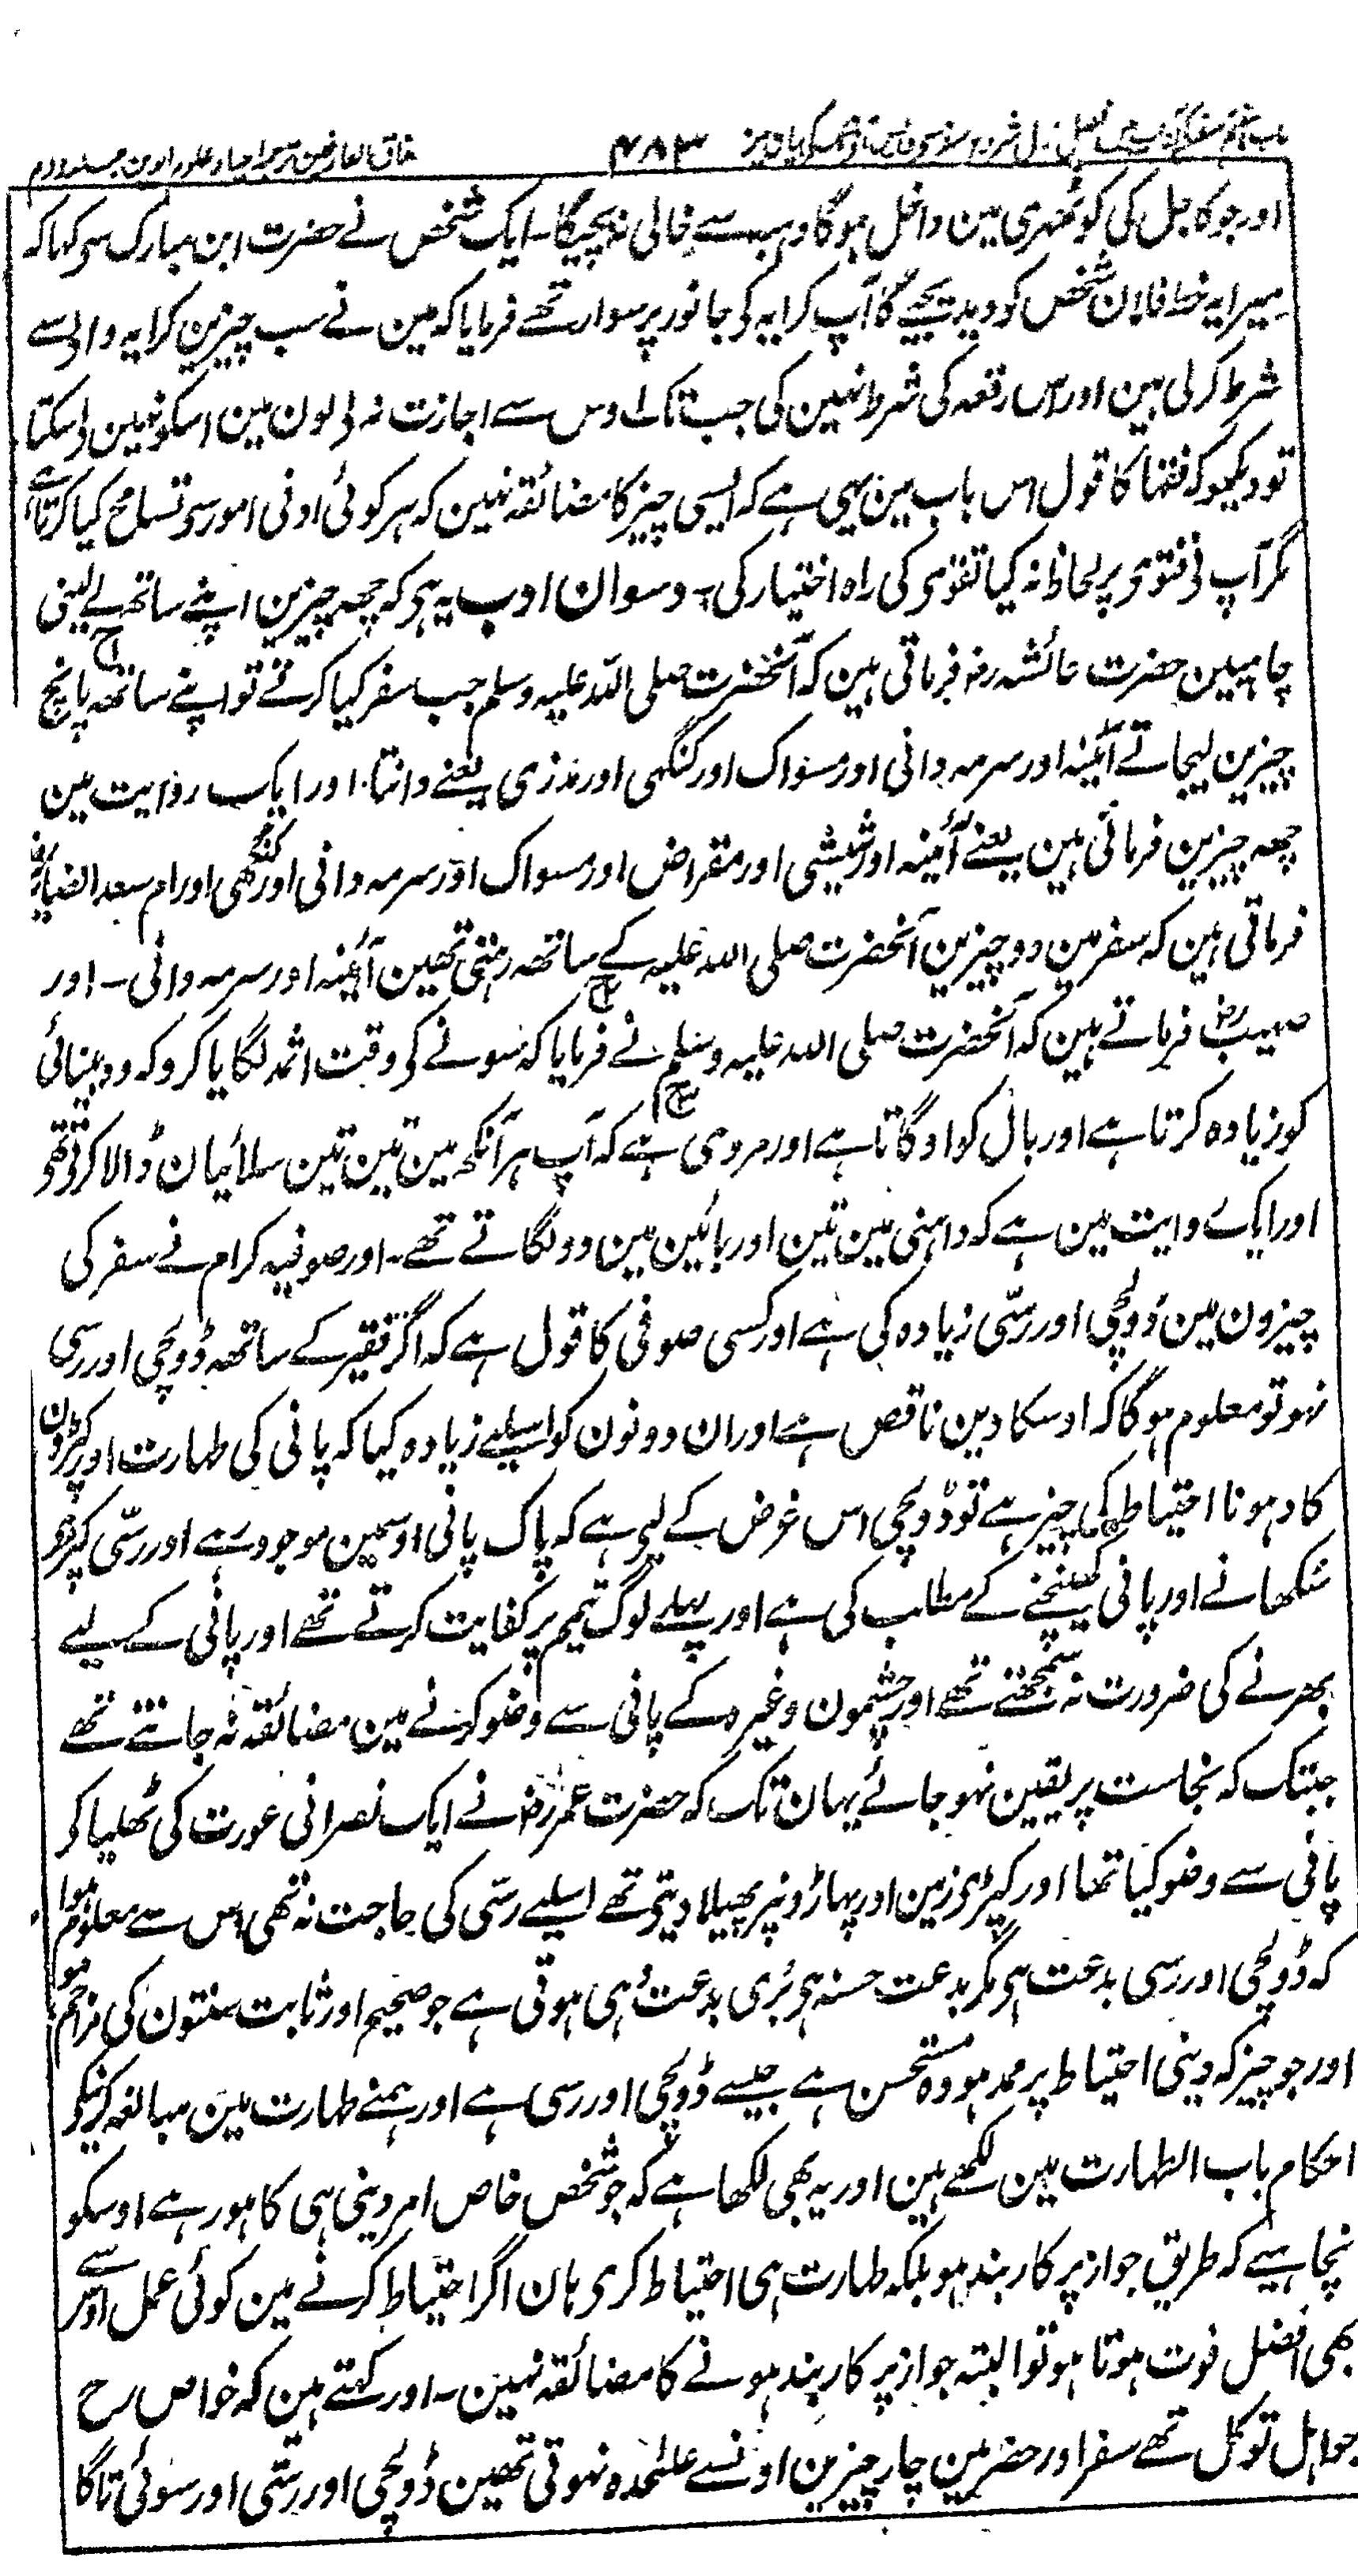 ۴۸۳ مذاق العارفین ترجمہ احیاء علوم الدین جلد دوم
اور جو کاجل کی کوٹھری مین داخل ہوگا دہبہ سے خالی نہ بچیگا۔ ایک شخص نے حضرت ابن مبارک سے کہا کہ
میرا یہ خط فلان شخص کو دیدیجیے گا آپ کرایہ کی جانور پر سوار تھے فرمایا کہ مین نے سب چیزین کرایہ والی سے
شرط کرلی ہین اور اس رقعہ کی شرط نہین کی جب تک اوس سے اجازت نہ لے لون مین اسکو نہین لیسکتا
تو دیکہو کہ فقہا کا قول اس باب مین یہی ہے کہ ایسی چیز کا مضائقہ نہین کہ ہر کوئی ادنی امور سے تسامح کیا کرتا ہے
مگر آپ نے فتوی پر لحاظ نہ کیا تقوی کی راہ اختیار کی۔ دسوان ادب یہ ہی کہ چھہ چیزین اپنے ساتھ لے لینی
چاہیین حضرت عائشہ رضہ فرماتی ہین کہ آنحضرت صلی اللہ علیہ وسلم جب سفر کیا کرتے تو اپنے ساتھہ پانچ
چیزین لیجاتے آئینہ اور سرمہ دانی اور مسواک اور کنگہی اور مذری یعنے دانتا۔ اور ایک روایت مین
چھہ چیزین فرمائی ہین یعنے آئینہ اور شیشی اور مقراض اور مسواک اور سرمہ دانی اور کنگھی اور ام سعد انصاریہ رضہ
فرماتی ہین کہ سفر مین دو چیزین آنحضرت صلی اللہ علیہ کے ساتھہ رہتی تھین آئینہ اور سرمہ دانی۔ اور
صہیب رضہ فرماتے ہین کہ آنحضرت صلی اللہ علیہ وسلم نے فرمایا کہ سونے کی وقت اثمد لگایا کرو کہ وہ بینائی
کو زیادہ کرتا ہے اور بال کو اوگاتا ہے اور مروی ہے کہ آپ ہر آنکھ مین تین تین سلائیان ڈالا کرتے تھے
اور ایک روایت مین ہے کہ داہنی مین تین اور بائین مین دو لگاتے تھے۔ اور صوفیہ کرام نے سفر کی
چیزون مین ڈولچی اور رسّی زیادہ کی ہے اور کسی صوفی کا قول ہے کہ اگر فقیر کے ساتھہ ڈولچی اور رسی
نہو تو معلوم ہوگا کہ اوسکا دین ناقص ہے اور ان دونون کو اسلیے زیادہ کیا کہ پانی کی طہارت اور کپڑون
کا دہونا احتیاط کی چیز ہے تو ڈولچی اس غرض کے لیے ہے کہ پاک پانی اوسمین موجود رہے اور رسّی کپڑے
سکھانے اور پانی کھینچنے کے مطلب کی ہے اور پہلے لوگ تیمم پر کفایت کرتے تھے اور پانی کے لیے
بھرنے کی ضرورت نہ سمجھتے تھے اور چشمون وغیرہ کے پانی سے وضو کرنے مین مضائقہ نہ جانتے تھے
جبتک کہ نجاست پر یقین نہو جائے یہان تک کہ حضرت عمر رضہ نے ایک نصرانی عورت کی ٹھلیا کے
پانی سے وضو کیا تھا اور کپڑے زمین اور پہاڑونپر پھیلا دیتے تھے اسلیے رسّی کی حاجت نہ تھی اس سے معلوم ہوا
کہ ڈولچی اور رسی بدعت ہی مگر بدعت حسنہ ہی بُری بدعت وُہی ہوتی ہے جو صحیح اور ثابت سنتون کی مزاحم ہو
اور جو چیز کہ دینی احتیاط پر ممد ہو وہ مستحسن ہے جیسے ڈولچی اور رسی ہے اور ہمنے طہارت مین مبالغہ کرنیکے
احکام باب الطہارت مین لکھے ہین اور یہ بھی لکھا ہے کہ جو شخص خاص امر دینی ہی کا ہو رہے اوسکو
نچاہیے کہ طریق جواز پر کاربند ہو بلکہ طہارت ہی احتیاط کرے ہان اگر احتیاط کرنے مین کوئی عمل اوس سے
بھی افضل فوت ہوتا ہو تو البتہ جواز پر کاربند ہونے کا مضائقہ نہین۔ اور کہتے ہین کہ خواص رح
جو اہل توکل تھے سفر اور حضر مین چار چیزین اونسے علیٰحدہ نہوتی تھین ڈولچی اور رسّی اور سوئی تاگا